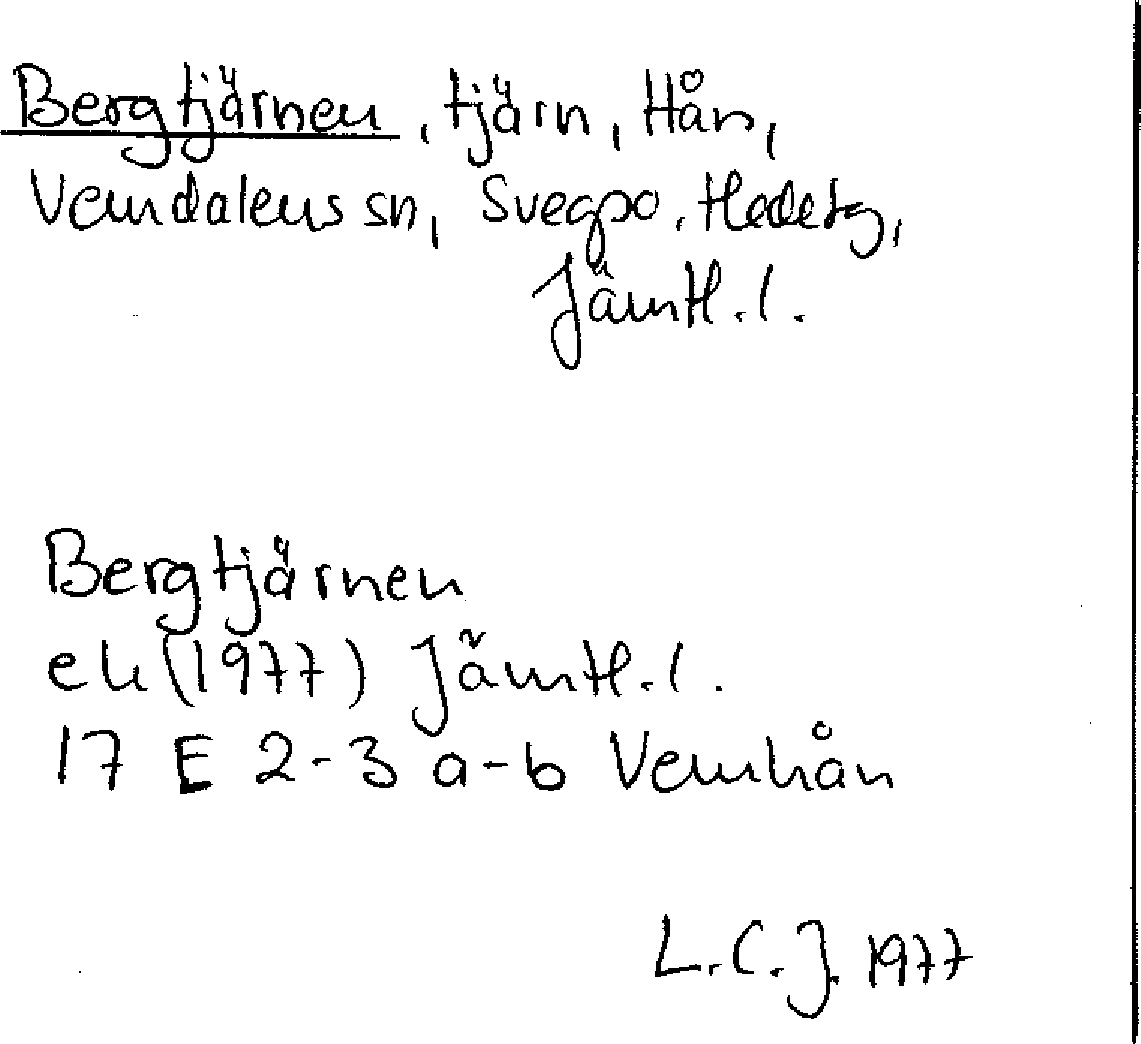 Bergtjärnen, tjärn, Hån,
Vemdalens sn, Svegpo, Hedetg,
Jämtl. l.
Bergtjärnen
ek (1977) Jämtl. l.
17 E 2-3 a-b Vemhån
L.C.J. 1977